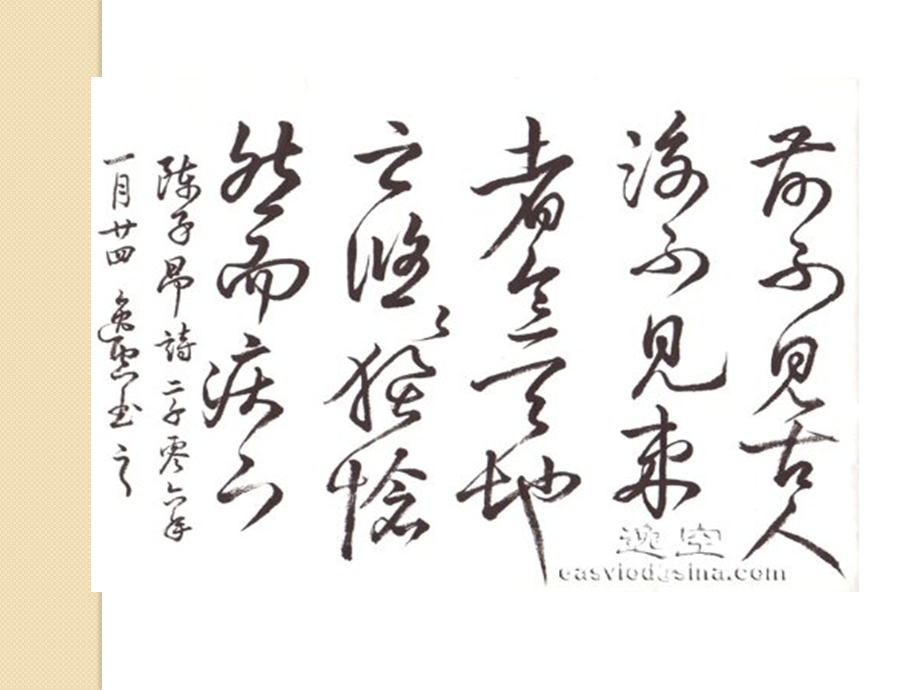 前不见古人
後不见来
者念天地
之悠々独怆
然而涕下
陈子昂詩二千零六年
一月廿四逸空书之
逸空
easviod@sina.com